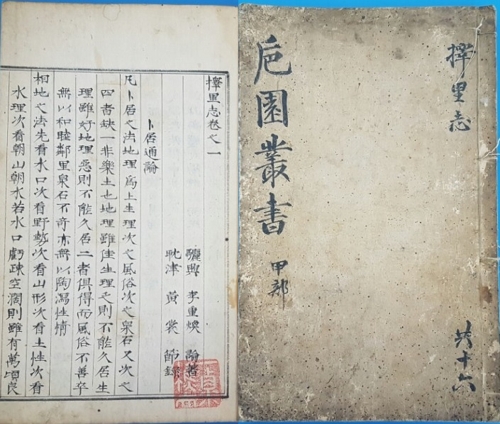 擇里志
共十六
巵園叢書 甲部
擇里志卷之一
驪興 李重煥 著
耽津 黃裳 節錄
卜居通論
凡卜居之法地理爲上生理次之風俗次之泉石又次之
四者缺一非樂土也地理雖佳生理乏則不能久居生
理雖好地理惡則不能久居二者俱得而風俗不善卒
無以和睦鄰里泉石不奇亦無以陶瀉性情
相地之法先看水口次看野勢次看山形次看土性次看
水理次看朝山朝水若水口虧疎空濶則雖有萬頃良